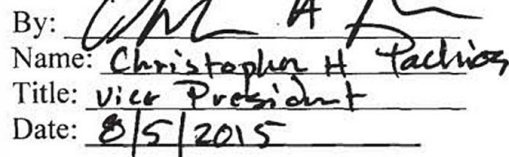 By:
Name: Christopher H Pachios
Title: Vice President
Date: 8/5/2015